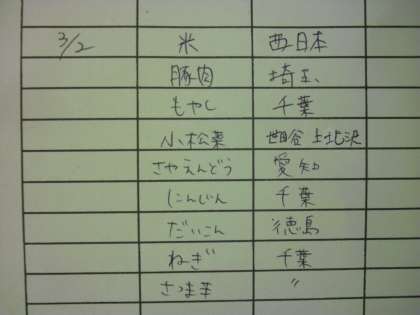 3/2 米 西日本
豚肉 埼玉
もやし 千葉
小松菜 世田谷 上北沢
さやえんどう 愛知
にんじん 千葉
だいこん 徳島
ねぎ 千葉
さつま芋 〃